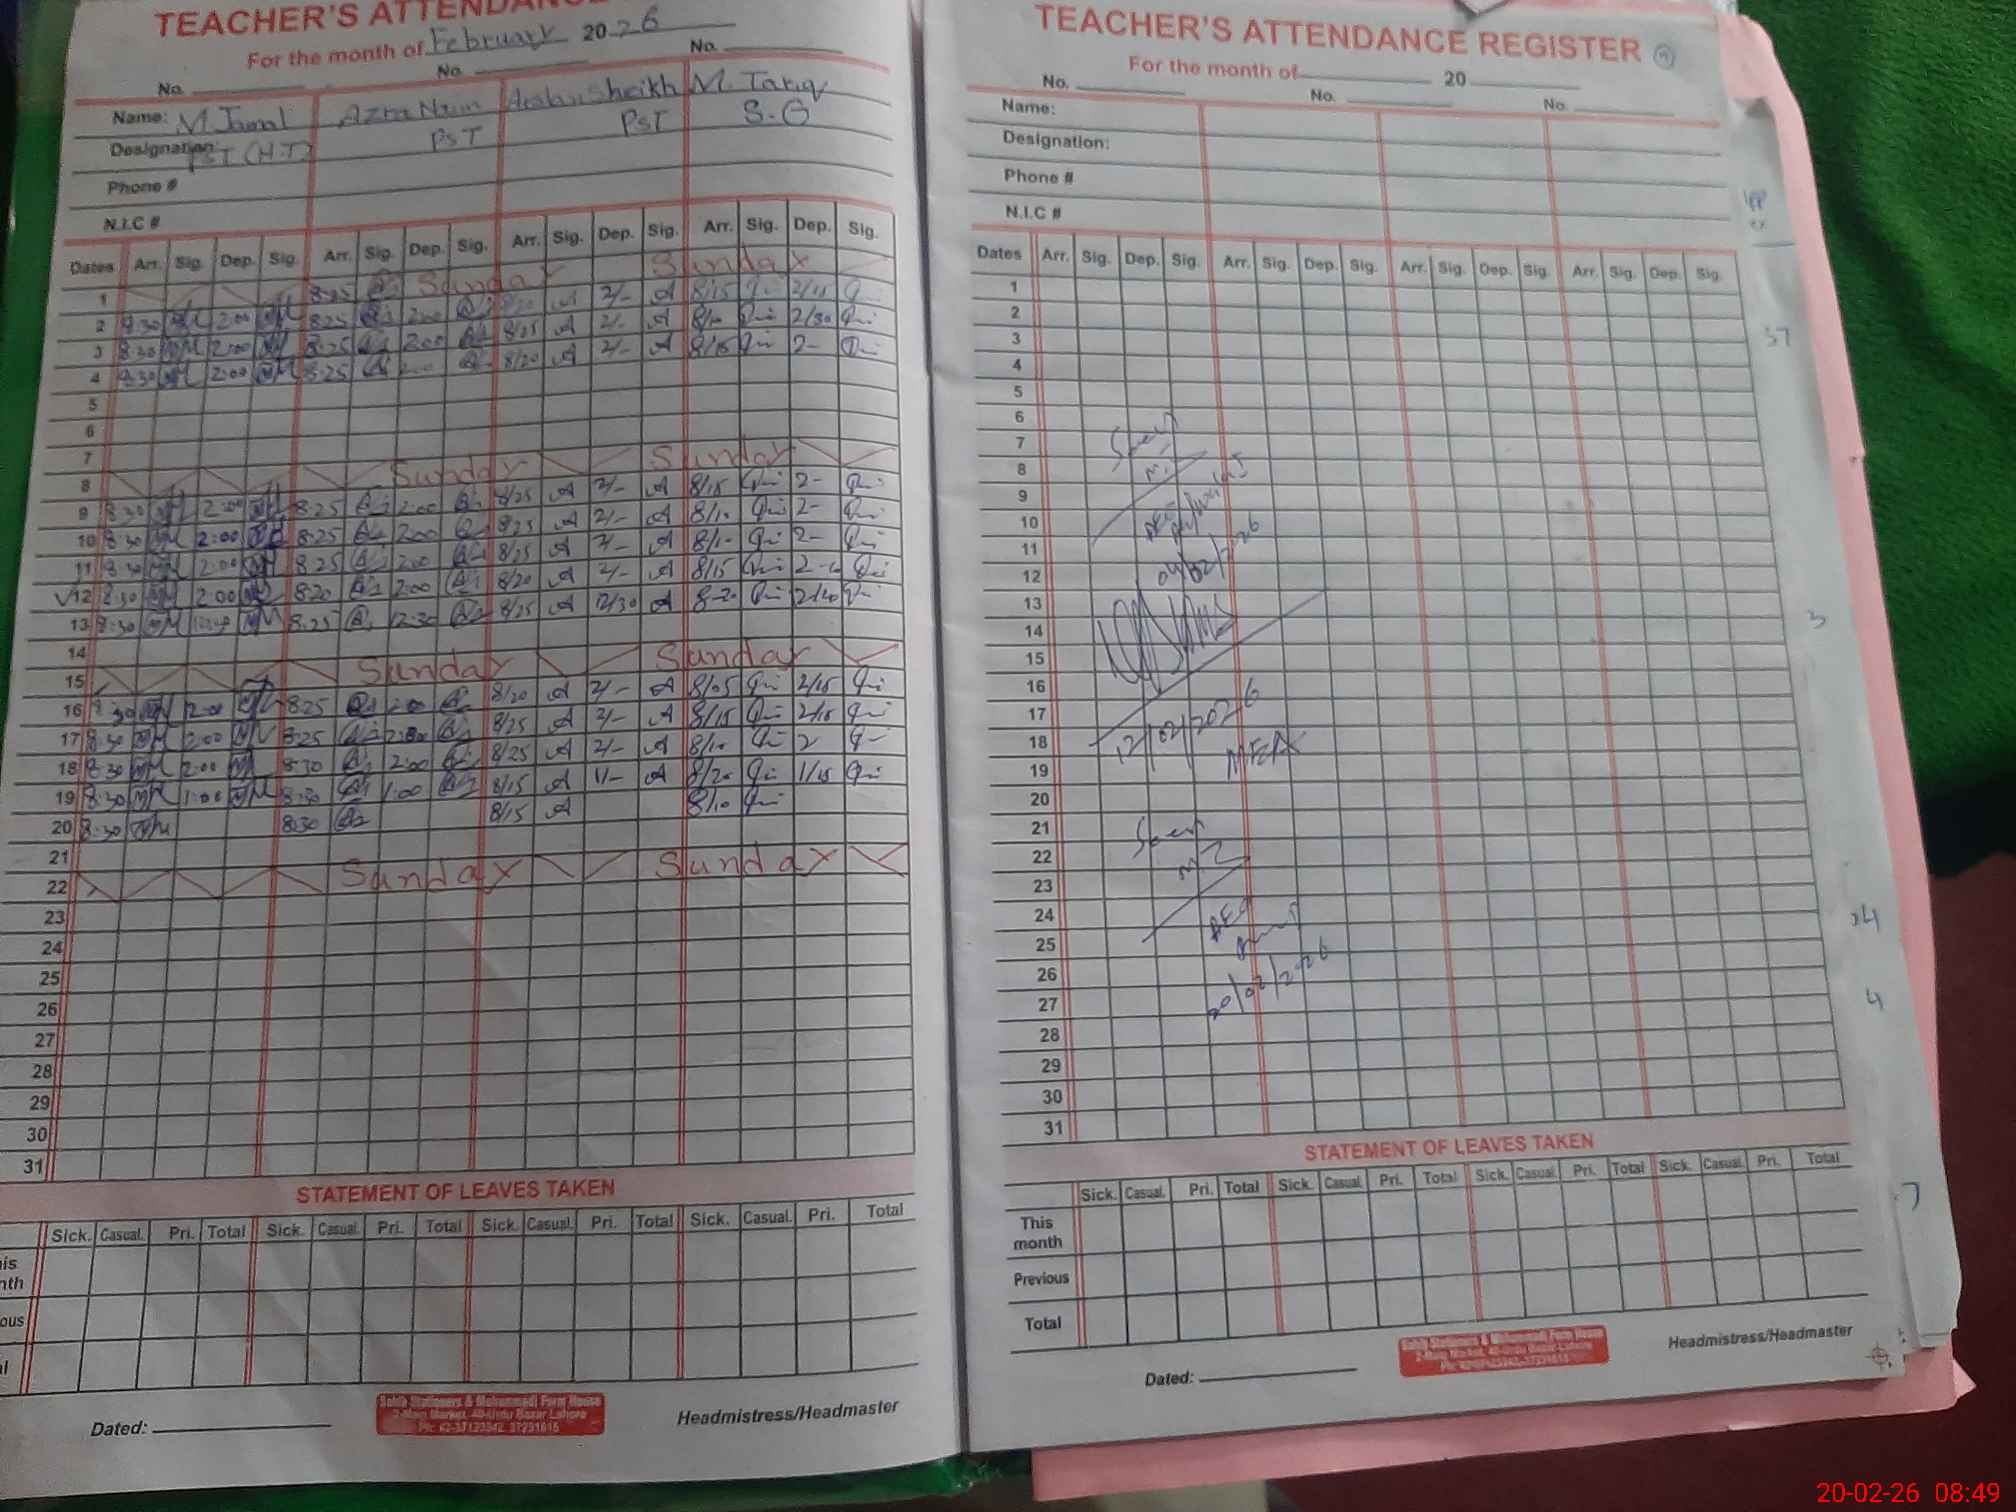 TEACHER'S ATTENDANCE
For the month of February 2026
No. No. No.
Name: M. Jamal Azra Sheikh M. Tariq
Designation: PST (H.T) PST PST S.G
Phone #
N.I.C #
Dates Arr. Sig. Dep. Sig. Arr. Sig. Dep. Sig. Arr. Sig. Dep. Sig. Arr. Sig. Dep. Sig.
1 8:25 Sunday Sunday
2 8:30 2:00 8:25 2:00 8/20 A 2/- A 8/15 2/15
3 8:30 2:00 8:25 2:00 8/25 A 2/- A 8/10 2/30
4 8:30 2:00 8:25 8/20 A 2/- A 8/15 2-
5
6
7
8 Sunday Sunday
9 8:30 2:00 8:25 2:00 8/25 A 2/- A 8/15 2-
10 8:30 2:00 8:25 2:00 8/25 A 2/- A 8/10 2-
11 8:30 2:00 8:25 2:00 8/25 A 2/- A 2-
12 8:30 2:00 8:20 2:00 8/20 A 2/- A 8/15
13 8:30 8:25 12:30 8/25 A 12/30 A
14
15 Sunday Sunday
16 8:30 2:00 8:25 2:00 8/20 A 2/- A 8/05 2/15
17 8:30 2:00 8:25 2:00 8/25 A 2/- A 8/15 2/15
18 8:30 2:00 8:30 2:00 8/25 A 2/- A 8/10 2
19 8:30 1:00 8:30 1:00 8/15 A 1/- A 8/20 1/15
20 8:30 8:30 8/15 A 8/10
21
22 Sunday Sunday
23
24
25
26
27
28
29
30
31
STATEMENT OF LEAVES TAKEN
Sick. Casual. Pri. Total Sick. Casual. Pri. Total Sick. Casual. Pri. Total Sick. Casual. Pri. Total
Dated:
Sahib Stationers & Mohammadi Form House
2-Main Market, 40-Urdu Bazar Lahore
Headmistress/Headmaster
TEACHER'S ATTENDANCE REGISTER
For the month of 20
No. No. No.
Name:
Designation:
Phone #
N.I.C #
Dates Arr. Sig. Dep. Sig. Arr. Sig. Dep. Sig. Arr. Sig. Dep. Sig. Arr. Sig. Dep. Sig.
1
2
3
4
5
6
7
8
9
10
11
12
13
14
15
16
17
18
19
20
21
22
23
24
25
26
27
28
29
30
31
Seen
AEO
04/02/2026
12/02/2026
MEA
Seen
AEO
20/02/2026
STATEMENT OF LEAVES TAKEN
Sick. Casual. Pri. Total Sick. Casual. Pri. Total Sick. Casual. Pri. Total Sick. Casual. Pri. Total
This month
Previous
Total
Dated:
Sahib Stationers & Mohammadi Form House
2-Main Market, 40-Urdu Bazar Lahore
Headmistress/Headmaster
37
3
24
4
7
20-02-26 08:49